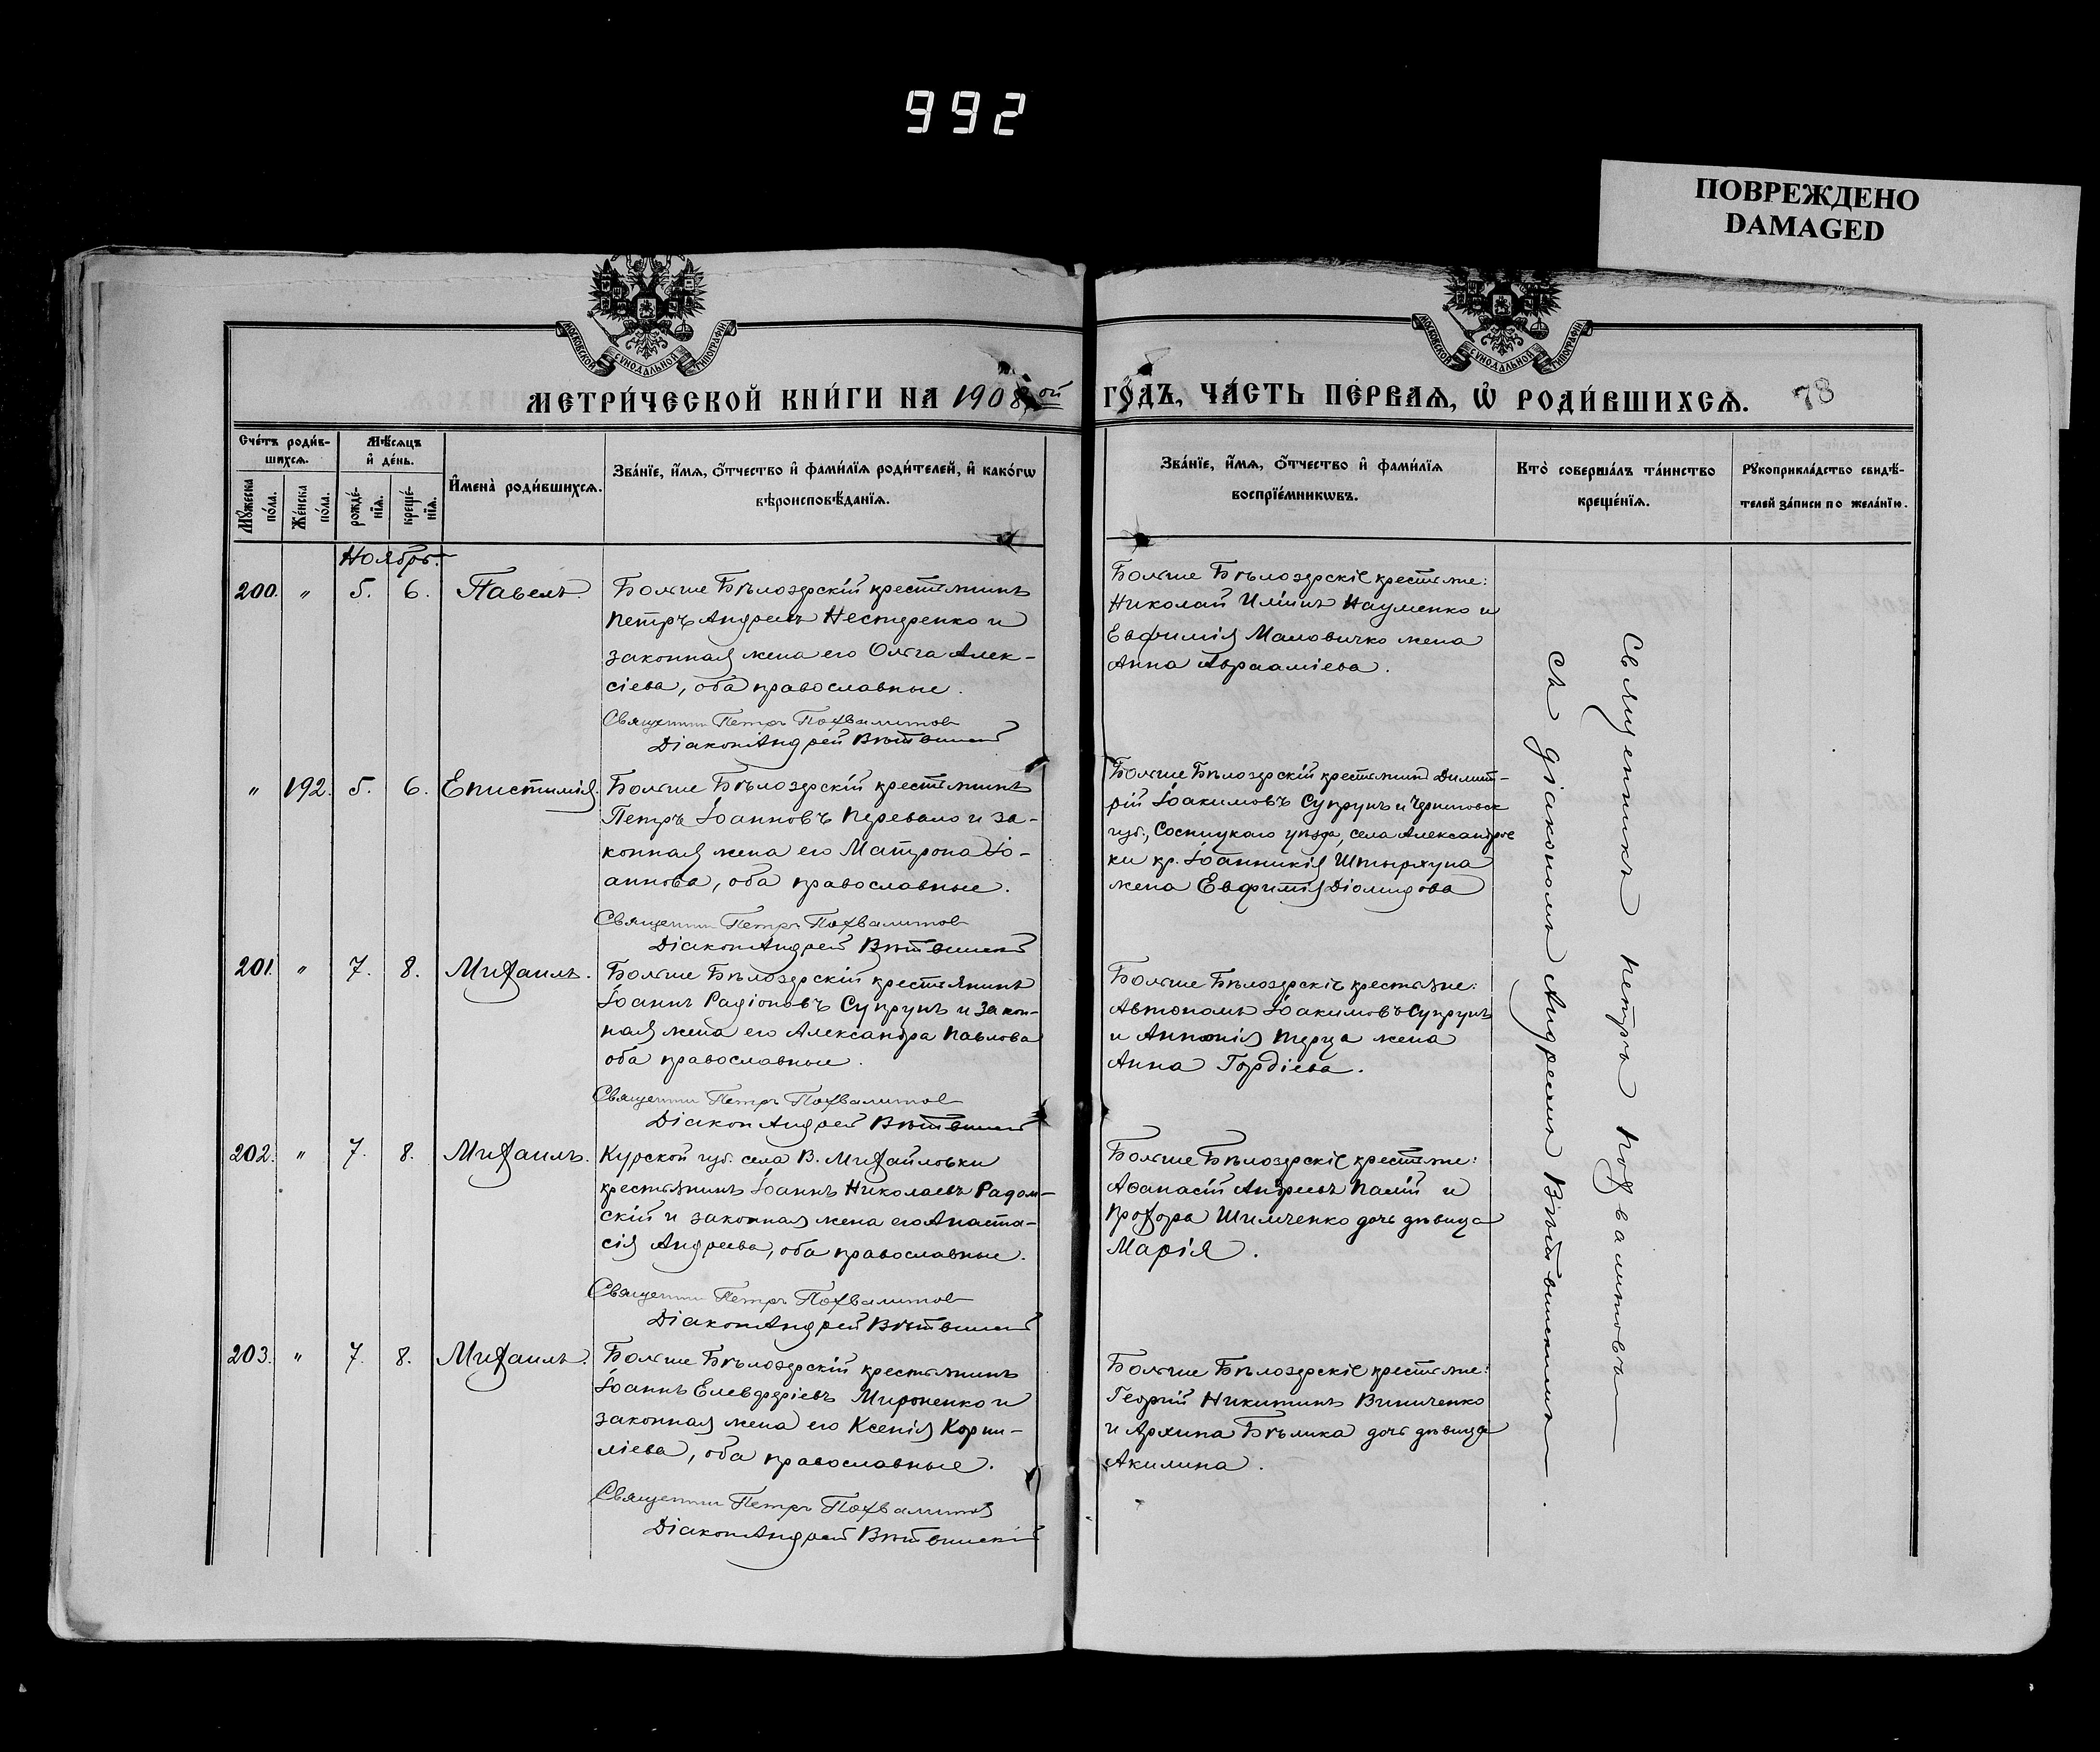 992
ПОВРЕЖДЕНО
DAMAGED
МОСКОВСКОЙ СѴНОДАЛЬНОЙ ТИПОГРАФІИ
МОСКОВСКОЙ СѴНОДАЛЬНОЙ ТИПОГРАФІИ
МЕТРИ́ЧЕСКОЙ КНИ́ГИ НА 1908ой ГО́ДЪ, ЧА́СТЬ ПЕ́РВАѦ, Ѽ РОДИ́ВШИХСѦ. 78
Сче́тъ роди́вшихсѧ.
Мꙋ́жеска по́ла.
Же́нска по́ла.
Мѣ́сѧцъ и҆ де́нь.
рожде́нїѧ.
креще́нїѧ.
И҆мена̀ роди́вшихсѧ.
Зва́нїе, и҆́мѧ, ѻ҆́тчество и҆ фами́лїѧ роди́телей, и҆ како́гѡ
вѣроисповѣ́данїѧ.
Зва́нїе, и҆́мѧ, ѻ҆́тчество и҆ фами́лїѧ
воспрїе́мникѡвъ.
Кто̀ соверша́лъ та́инство
креще́нїѧ.
Рꙋкоприкла́дство свидѣ́-
телей за́писи по жела́нїю.
Ноябрь.
200. " 5. 6. Павелъ.
Больше Бѣлозерскій крестьянинъ
Петръ Андреевъ Нестеренко и
законная жена его Ольга Алек-
сіева, оба православные.
Священник Петръ Похвалитов
Діакон Андрей Вѣтвинскій
Больше Бѣлозерскіе крестьяне:
Николай Иліинъ Науменко и
Евфимія Маловичко жена
Анна Авраамiева.
" 192. 5. 6. Епистимія.
Больше Бѣлозерскій крестьянинъ
Петръ Іоанновъ Перевало и за-
конная жена его Матрона Іо-
аннова, оба православные.
Священник Петръ Похвалитов
Діакон Андрей Вѣтвинскій
Больше Бѣлозерскій крестьянин Димит-
рій Іоакимовъ Супрунъ и Черниговск
губ., Сосницкаго уѣзда, села Александров
ки кр. Іоанникія Штыркуна
жена Евфимія Діомидова
201. " 7. 8. Михаилъ.
Больше Бѣлозерскій крестьянинъ
Іоаннъ Радіоновъ Супрунъ и закон-
ная жена его Александра Павлова
оба православные.
Священник Петръ Похвалитов
Діакон Андрей Вѣтвинскій
Больше Бѣлозерскіе крестьяне:
Автономъ Іоакимовъ Супрунъ
и Антонія Перца жена
Анна Гордіева.
202. " 7. 8. Михаилъ.
Курской губ. села В. Михайловки
крестьянинъ Іоаннъ Николаевъ Радом-
скій и законная жена его Анаста-
сія Андреева, оба православные.
Священник Петръ Похвалитов
Діакон Андрей Вѣтвинскій
Больше Бѣлозерскіе крестьяне:
Аѳанасій Андреевъ Палій и
Прохора Шимченко дочь дѣвица
Марія.
203. " 7. 8. Михаилъ.
Больше Бѣлозерскій крестьянинъ
Іоаннъ Елевферіевъ Мироненко и
законная жена его Ксенія Корни-
ліева, оба православные.
Священник Петръ Похвалитов
Діакон Андрей Вѣтвинскій
Больше Бѣлозерскіе крестьяне:
Георгій Никитинъ Виниченко
и Архипа Бѣлика дочь дѣвица
Акилина.
Священникъ Петръ Похвалитовъ
съ діакономъ Андреемъ Вѣтвинскимъ.